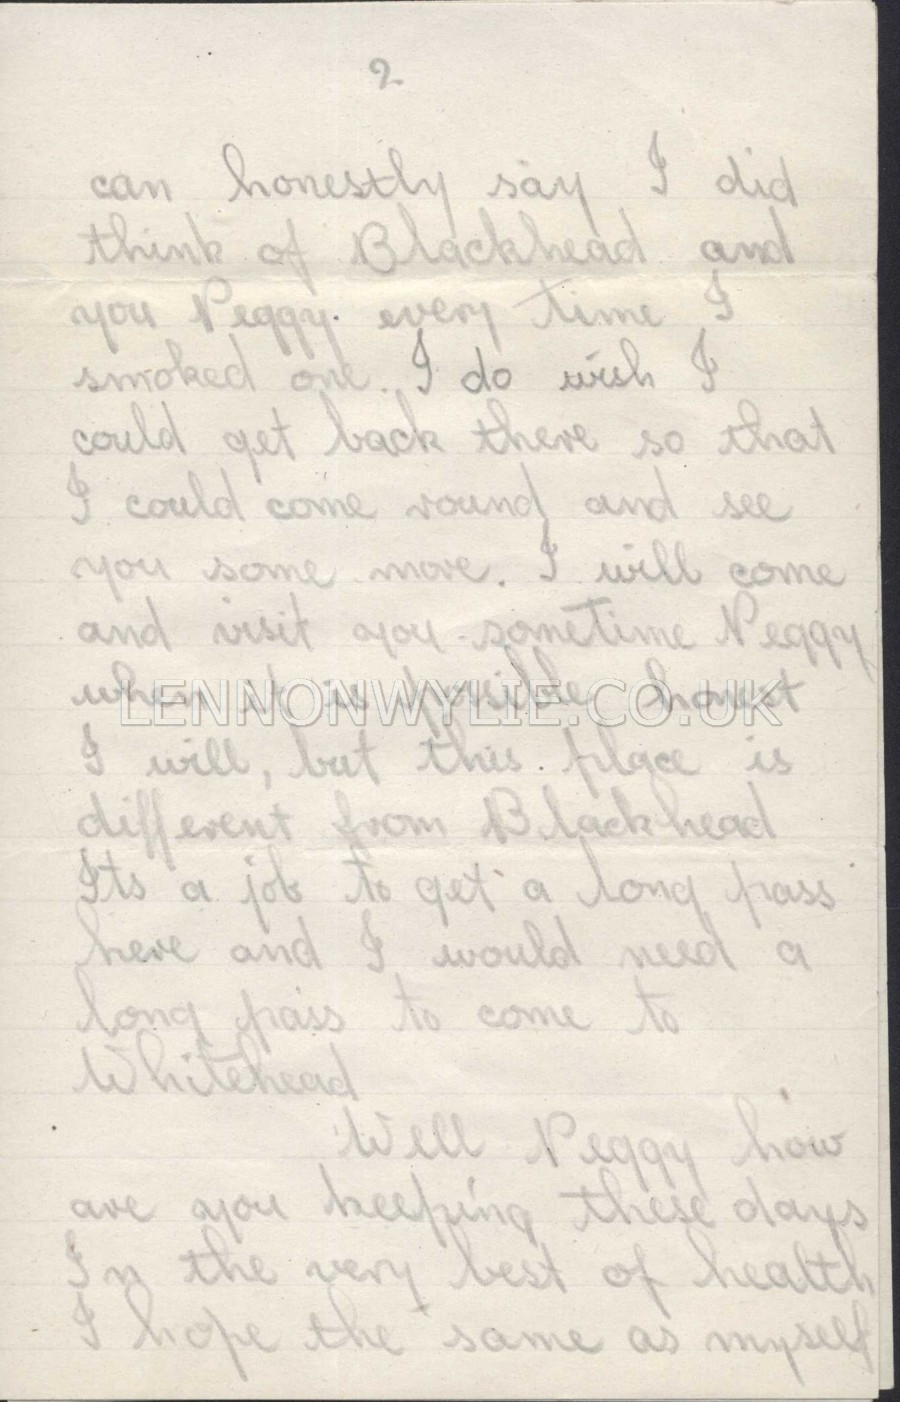 2
can honestly say I did
think of Blackhead and
you Peggy. every time I
smoked one. I do wish I
could get back there so that
I could come round and see
you some more. I will come
and visit you sometime Peggy
when it is possible honest
LENNONWYLIE.CO.UK
I will, but this place is
different from Blackhead
Its a job to get a long pass
here and I would need a
long pass to come to
Whitehead
Well Peggy how
are you keeping these days
In the very best of health
I hope the same as myself